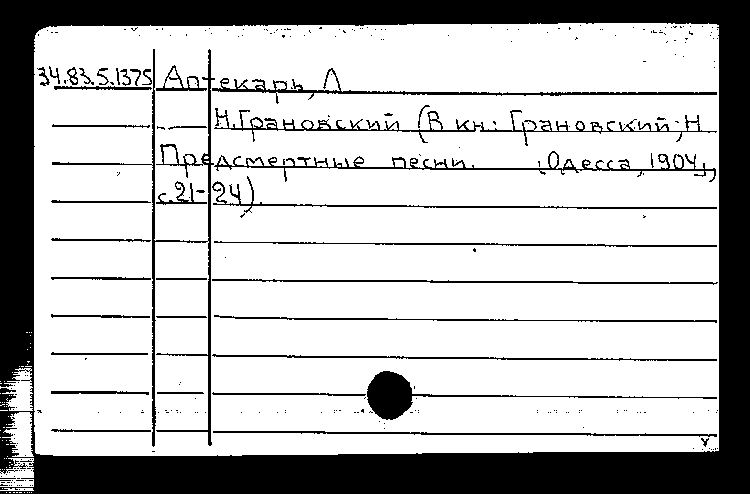 34.83.5.1375 Аптекарь, Л
Н.Грановский (В кн.: Грановский, Н
Предсмертные песни. [Одесса, 1904],
с.21-24).